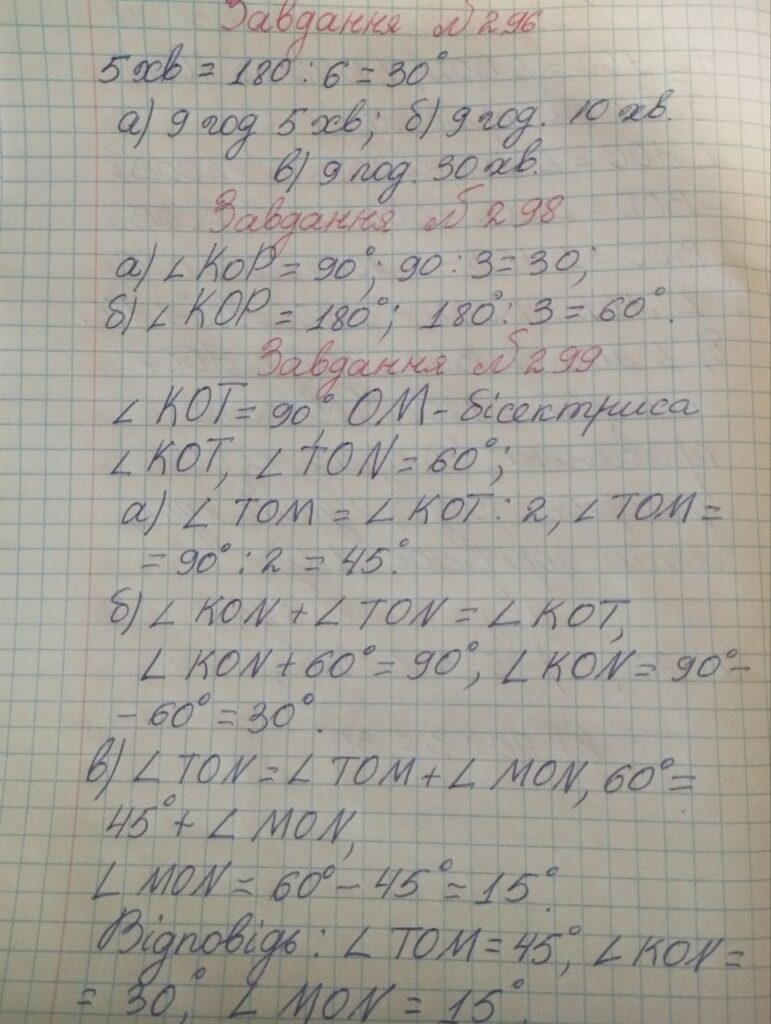 Завдання №296
5 хв = 180 : 6 = 30°
а) 9 год 5 хв; б) 9 год. 10 хв.
в) 9 год. 30 хв.
Завдання №298
а) ∠ KOP = 90°; 90 : 3 = 30;
б) ∠ KOP = 180°; 180° : 3 = 60°.
Завдання №299
∠ KOT = 90°, OM - бісектриса
∠ KOT, ∠ TON = 60°;
а) ∠ TOM = ∠ KOT : 2, ∠ TOM =
= 90° : 2 = 45°.
б) ∠ KON + ∠ TON = ∠ KOT,
∠ KON + 60° = 90°, ∠ KON = 90° -
- 60° = 30°.
в) ∠ TON = ∠ TOM + ∠ MON, 60° =
45° + ∠ MON,
∠ MON = 60° - 45° = 15°.
Відповідь: ∠ TOM = 45°, ∠ KON =
= 30°, ∠ MON = 15°.